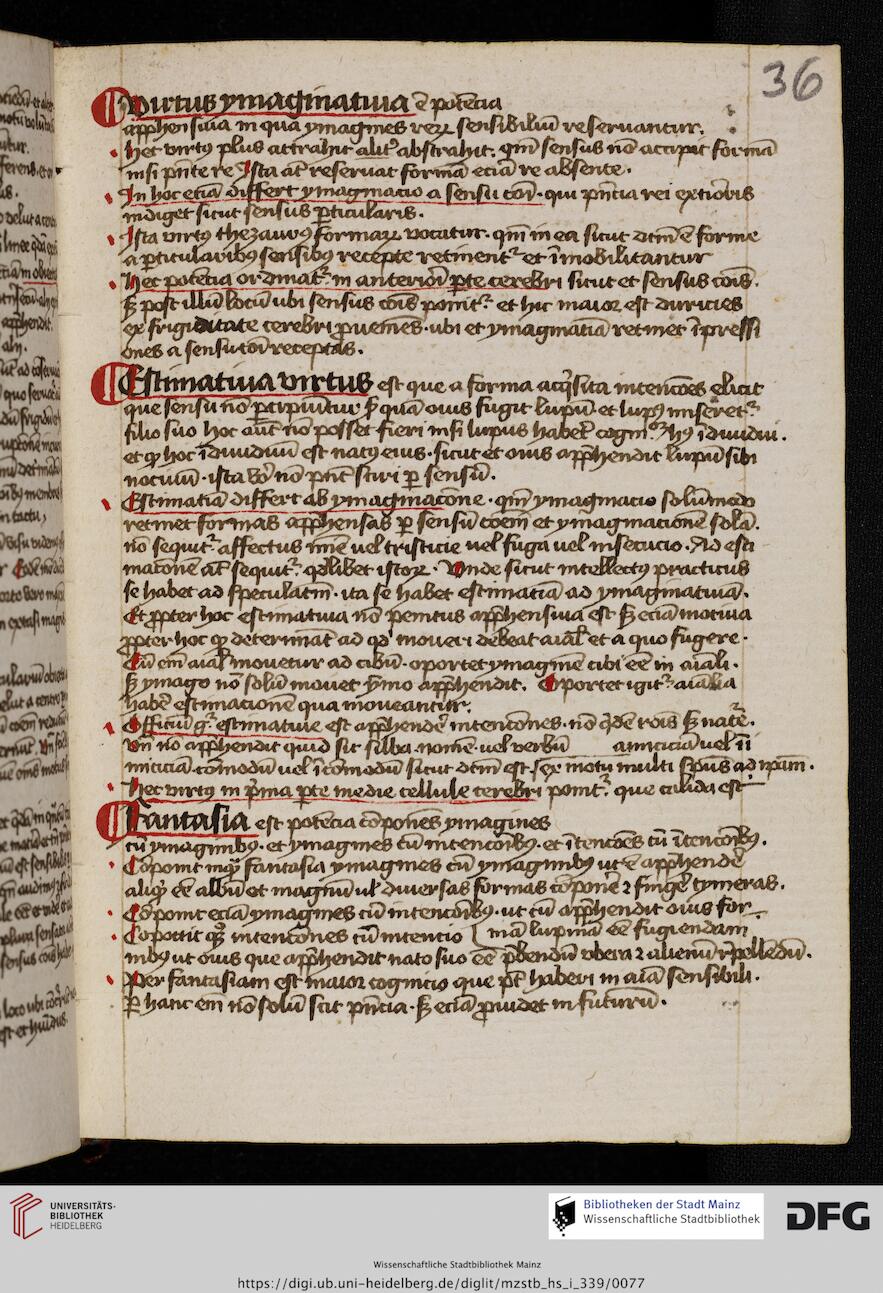 36
Virtus ymaginatiua ē potētia
apph̄ensiua in qua ymagines reꝝ sensibiliū reseruantur.
hec virtꝰ plus attrahit abstrahit. qm̄ sensus nō accipit formā
nisi pn̄te re Ista at̄ reseruat formā eciā re absente.
In hoc eciā differt ymaginacio a sensu cōi. qui pn̄cia rei extioris
indiget sicut sensus ꝑticularis.
Ista virtꝰ thezaurus formaꝝ vocatur. qm̄ in ea sicut dictm̄ ē forme
a ꝑticularibꝰ sensibꝰ recepte retinent᷑ et īmobilitantur
Hec potencia ordinat᷑ in anteriori ꝑte cerebri sicut et sensus cōis.
sꝫ post illū locū ubi sensus cōis ponit᷑ et hic maior est duricies
ex frigiditate cerebri ꝓueniēs. ubi et ymaginatiā retinet īpressi
ones a sensu cōi receptas.
Estimatiua virtus est que a forma acq̄sita intencōes elicit
que sensu nō ꝑcipiunt᷑ quā ouis fugit lupū et lupꝰ miseret᷑
filio suo hoc aūt nō posset fieri nisi lupus haberet̄ cogni᷑ hꝰ īdiuidui.
et qꝫ hoc īdiuiduū est natꝰ eius. sicut et ouis apph̄endit lupū sibi
nociuū. ista v̄o nō pn̄t sciri ꝑ sensū.
Estimatiā differt ab ymaginacōne. qm̄ ymaginacio solūmodo
retinet formas apph̄ensas ꝑ sensū cōem et ymaginacionē solā.
nō sequit᷑ affectus nec uel tristicie uel fuga uel insecucio. Ad esti
macōnē at̄ sequit᷑ qd̄libet istoꝝ. Vnde sicut intellectꝰ practicus
se habet ad speculatiū. ita se habet estimatiā ad ymaginatiuā.
Et ꝓpter hoc estimatiua nō penitus apph̄ensiua est sꝫ eciā motiua
ꝓpter hoc qꝫ determinat̄ ad qd̄ moueri debeat aīal et a quo fugere.
Cū em̄ aīal mouetur ad cibū. oportet ymaginē cibi eē in aīali.
sꝫ ymago nō solū mouet p̄mo apph̄endit. Oportet igit᷑ aīalia
habē estimacionē qua moueantur.
Officiū g̊ estimatiue est apph̄endē intencōnes. nō
Vn̄ nō apph̄endit quid sit silba. nomē. uel verbū amiciciā uel in
imiciciā. cōmodū uel īcōmodū sicut dictm̄ est. ex motu multi
Hec virtꝰ in p̄ma ꝑte medie cellule cerebri ponit᷑ que calida est
Fantasia est potēcia cōponēs ymagines
cū ymaginibꝰ. et ymagines cū intencōibꝰ. et ītencōes cū ītencōibꝰ.
Cōponit fantasia ymagines cū ymaginibꝰ ut ē apph̄endē
aliqꝫ eē albū et magnū ul᷑ diuersas formas cōponē ⁊ fingē tymeras.
Cōponit eciā ymagines cū intencōibꝰ. ut cū apph̄endit ouis for
Cōponit qꝫ intencōnes cū intencio mā lupinā eē fugiendam
nibꝰ ut ouis que apph̄endit nato suo eē p̄bendū vbera ⁊ alienū repellēdū.
Per fantasiam est maior cognicio que pōt haberi in aīa sensibili.
ꝑ hanc em̄ nō solū scit pn̄cia. sꝫ eciā ꝓuidet in futurū.
UNIVERSITÄTS-
BIBLIOTHEK
HEIDELBERG
Bibliotheken der Stadt Mainz
Wissenschaftliche Stadtbibliothek
DFG
Wissenschaftliche Stadtbibliothek Mainz
https://digi.ub.uni-heidelberg.de/diglit/mzstb_hs_i_339/0077